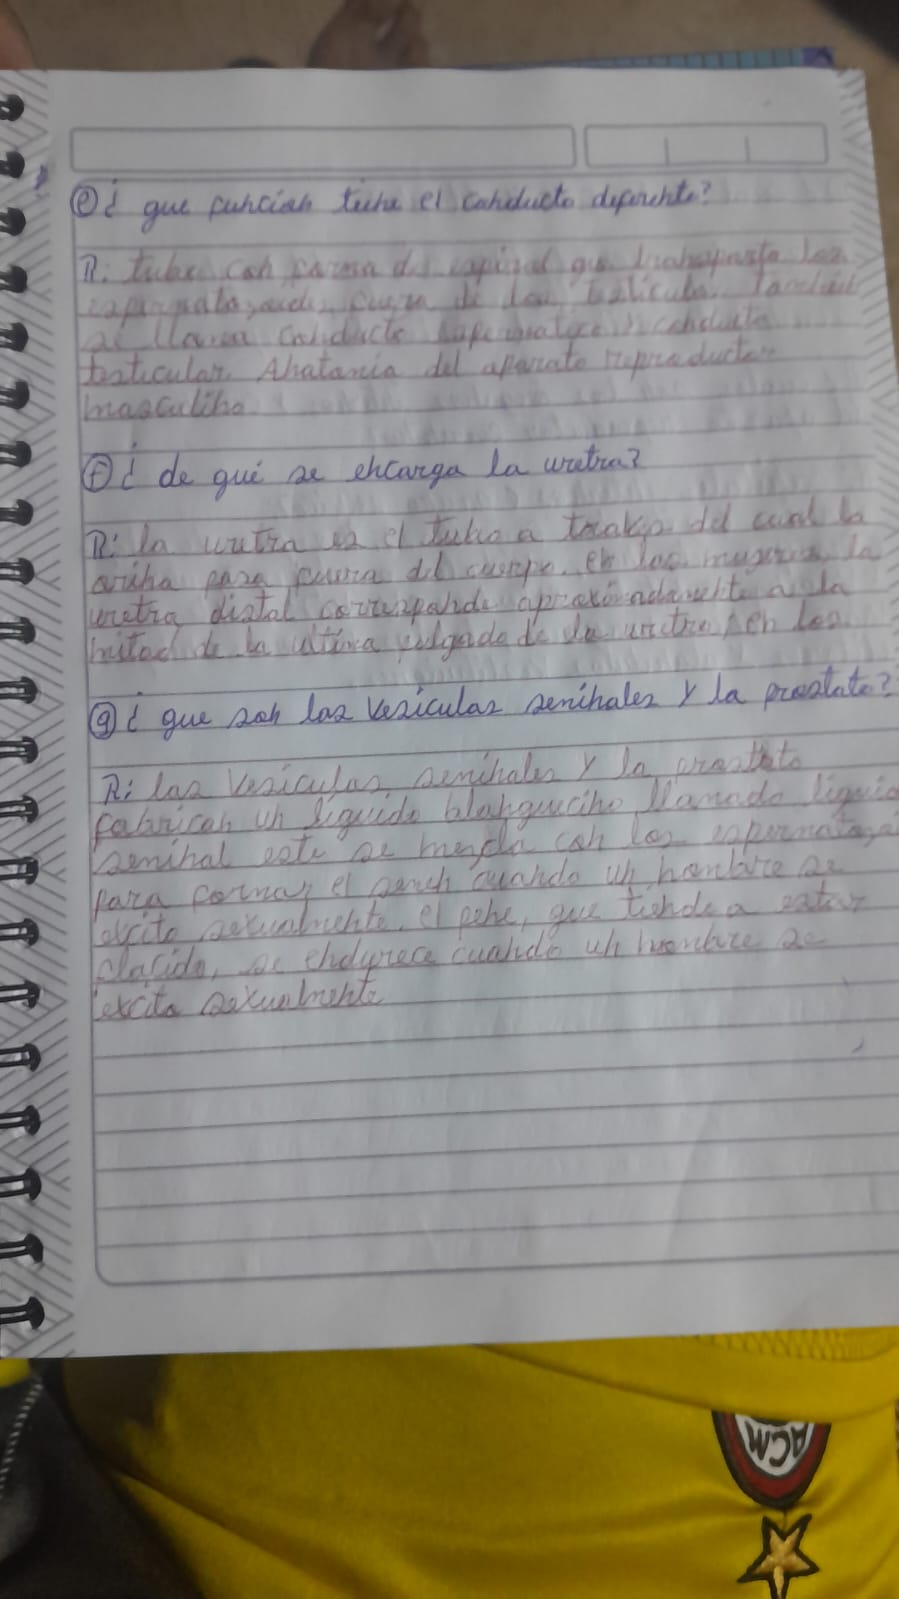 e) ¿ que función tiene el conducto deferente?
R: tubo con forma de espiral que transporta los
espermatozoides fuera de los testículo. También
se llama conducto espermatico y conducto
testicular. Anatomía del aparato reproductor
masculino
F) ¿ de qué se encarga la uretra?
R: la uretra es el tubo a través del cual la
orina pasa fuera del cuerpo. en las mujeres la
uretra distal corresponde aproximadamente a la
mitad de la ultima pulgada de la uretra, en los
g) ¿ que son las vesiculas seminales y la prostata?
R: las vesiculas seminales y la prostata
fabrican un liquido blanquecino llamado liquid
seminal este se mezcla con los espermatozoi
para formar el semen cuando un hombre se
excita sexualmente. el pene, que tiende a estar
flacido, se endurece cuando un hombre se
excita sexualmente
ACM